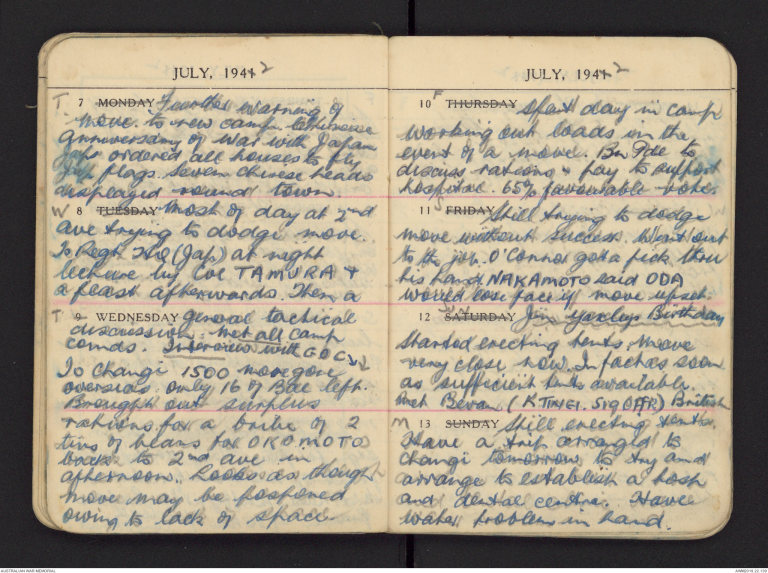 JULY, 1941 2
T 7 MONDAY Further warning of
move to new camp. Chinese
anniversary of War with Japan
Japs ordered all houses to fly
Jap flags. Seven Chinese heads
displayed round town.
W 8 TUESDAY Most of day at 2nd
Ave trying to dodge move.
To Regt HQ (Jap) at night
lecture by Col TAMURA +
a feast afterwards. Then a
T 9 WEDNESDAY general tactical
discussion. Met all camp
comds. Interview with GOC
To Changi 1500 move gone
overseas. Only 16 of Bde left.
Brought out surplus
rations for a bribe of 2
tins of beans for OKOMOTO
back to 2nd ave in
afternoon. Looks as though
move may be posponed
owing to lack of space
JULY, 1941 2
10 F THURSDAY Spent day in camp
working out loads in the
event of a move. Bn Pde to
discuss rations + pay to support
hospital. 65% favourable vote.
11 S FRIDAY Still trying to dodge
move without success. Went out
to the job. O'Connor got a pick thru
his hand NAKAMOTO said ODA
would lose face if move upset.
12 SATURDAY Jim Yaxleys Birthday
Started erecting tents. Move
very close now. In fact as soon
as sufficient tents available.
Met Bevan (KTINEI. SIG OFFR) British
M 13 SUNDAY Still erecting tents.
Have a trip arranged to
Changi tomorrow to try and
arrange to establish a hosp
and dental centre. Have
water problem in hand.
AUSTRALIAN WAR MEMORIAL